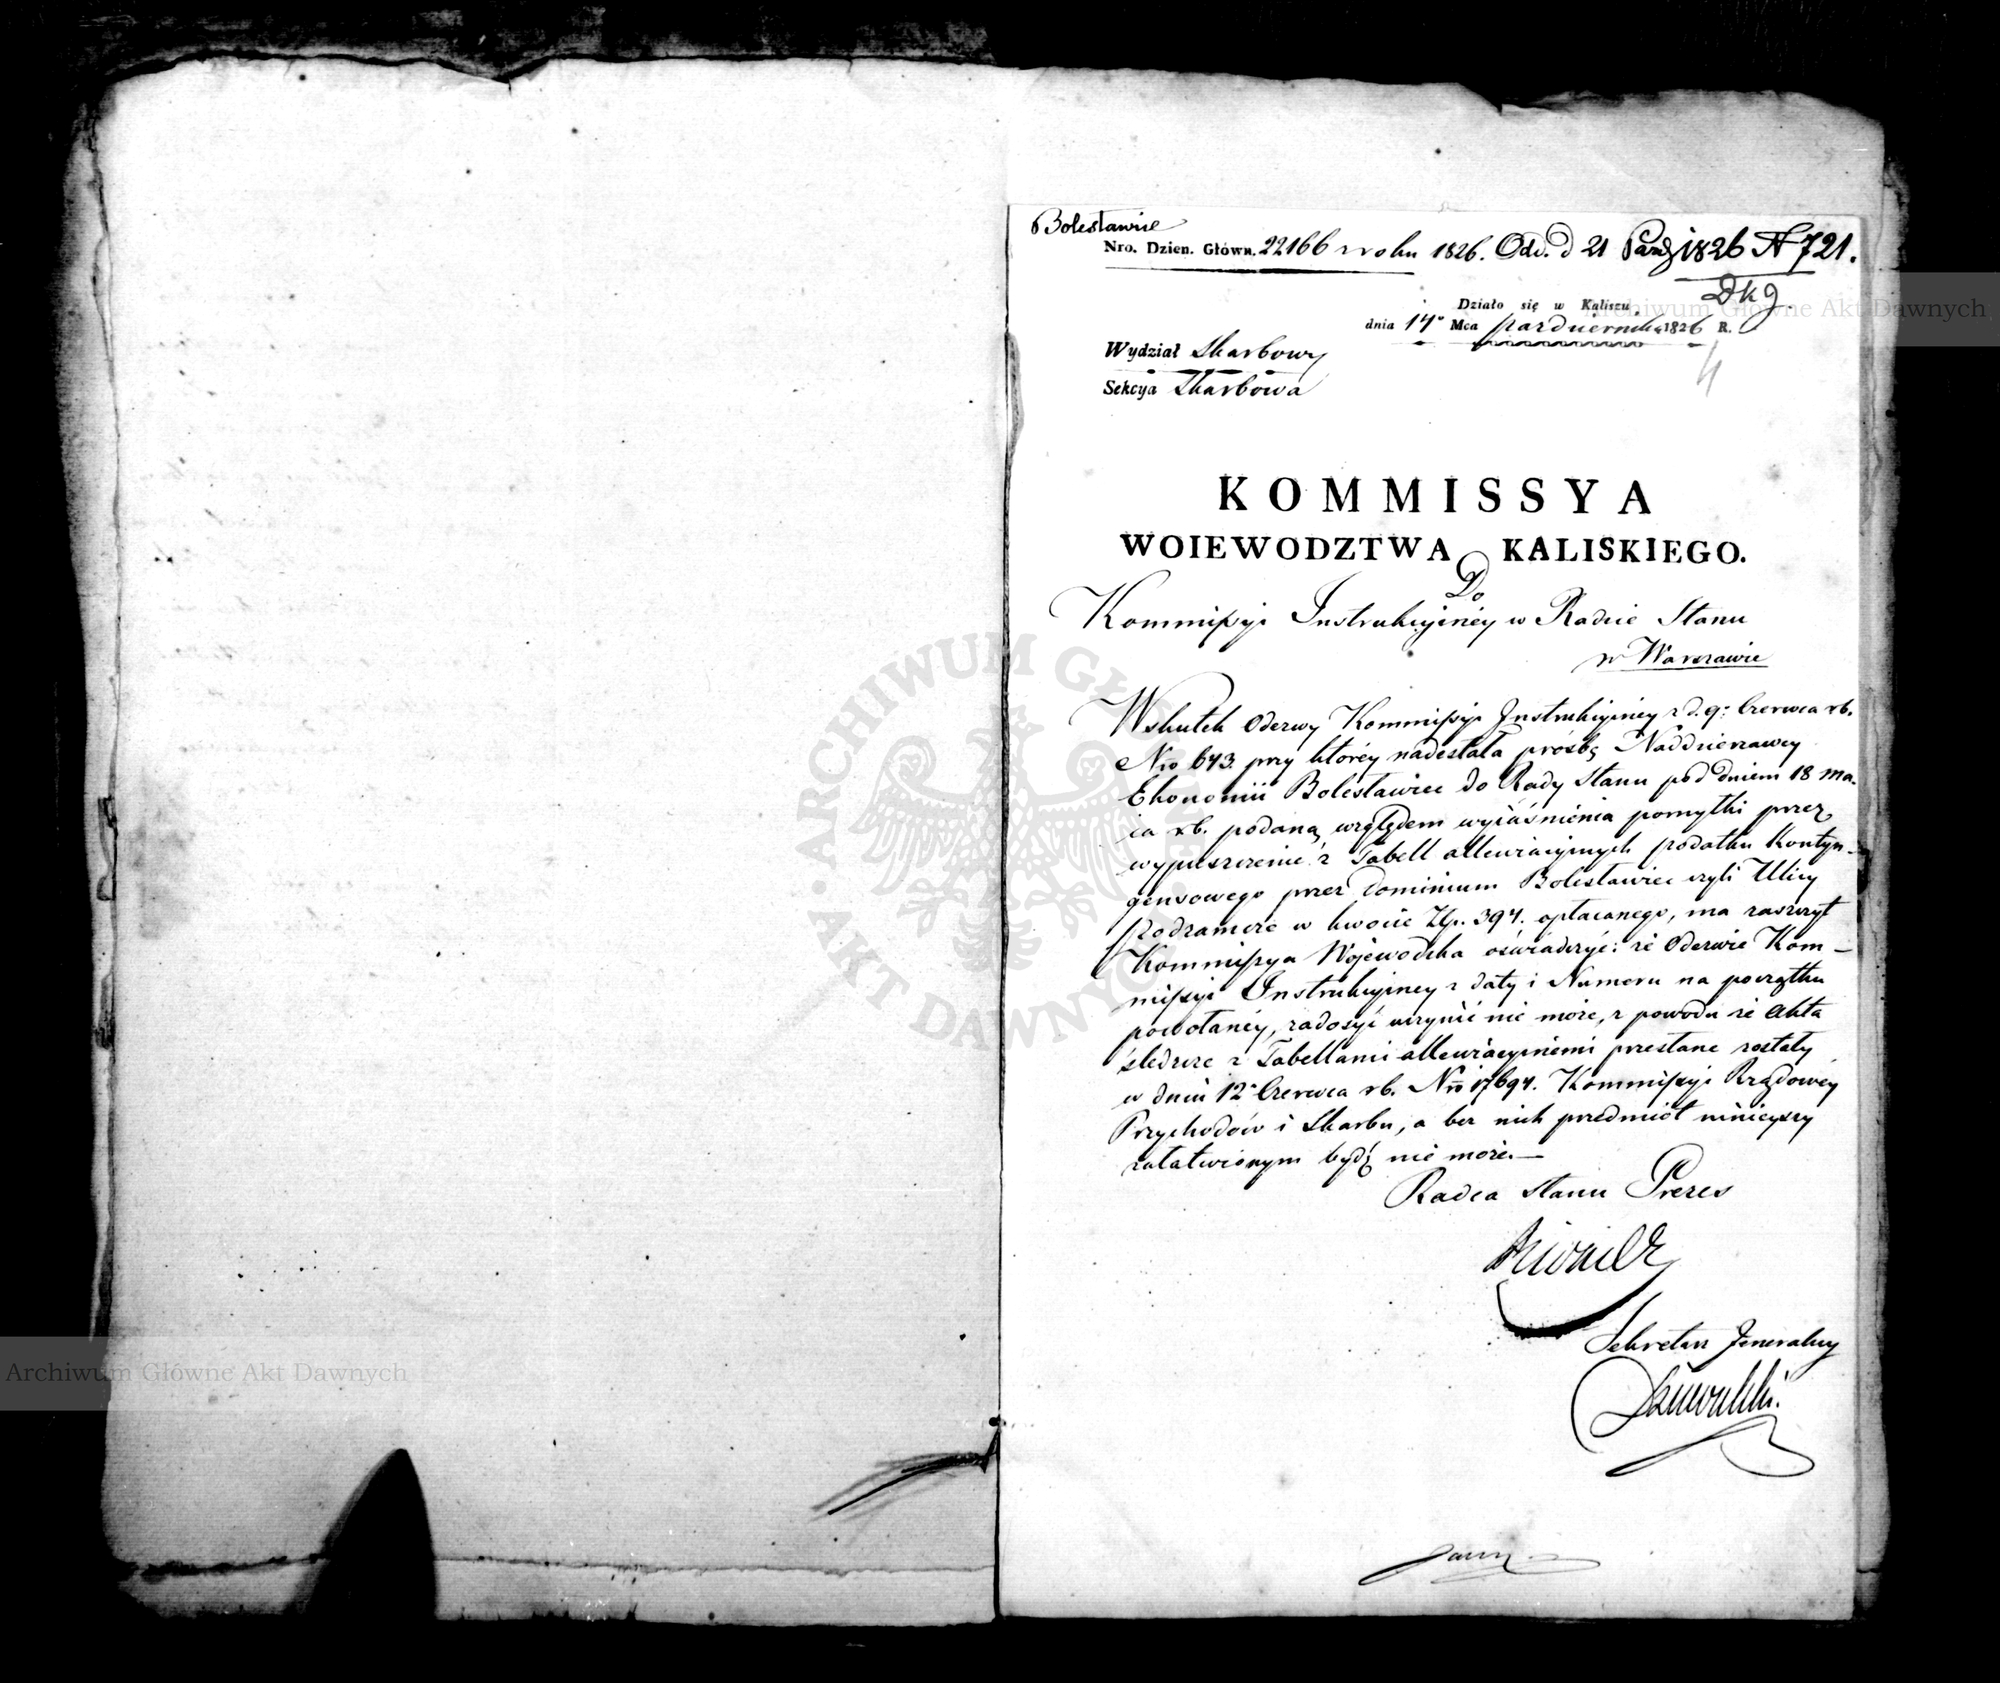 Bolesławiec
Nro. Dzien. Główn. 22166 z roku 1826. Odd. d 21 Paźdz 1826 N 721.
Działo się w Kaliszu
dnia 14º Mca października 1826 R.
4
Wydział Skarbowy
Sekcya Skarbowa
KOMMISSYA
WOIEWODZTWA KALISKIEGO.
Do
Kommissyi Instrukcyiney w Radzie Stanu
w Warszawie
Wskutek Odezwy Kommissyi Instrukcyiney z d. 9º Czerwca rb.
Nro 643. przy któréy nadesłała prósbę Naddzierzawcy
Ekonomii Bolesławiec do Rady Stanu pod dniem 18 ma-
ia rb. podaną względem wyiáśnienia pomyłki przez
wypuszczenie z Tabell allewiacyinych podatku Kontyn-
gensowego przez Dominium Bolesławiec czyli Ulicy
Podzamcze w kwocie Złp. 394. opłacanego, ma zaszczyt
Kommissya Wojewodzka oświadczyć: że Odezwie Kom-
missyi Instrukcyiney z daty i Numeru na początku
powołanéy, zadosyć uczynić nie może, z powodu że Akta
śledcze z Tabellami allewiacyinemi przesłane zostały
w dniu 12º Czerwca rb. Nro 17694. Kommissyi Rządowéy
Przychodów i Skarbu, a bez nich przedmiót ninieyszy
załatwionym bydź nie może.—
Radca Stanu Prezes
Sekretarz Jeneralny
Archiwum Główne Akt Dawnych
Archiwum Główne Akt Dawnych
ARCHIWUM GŁÓWNE AKT DAWNYCH